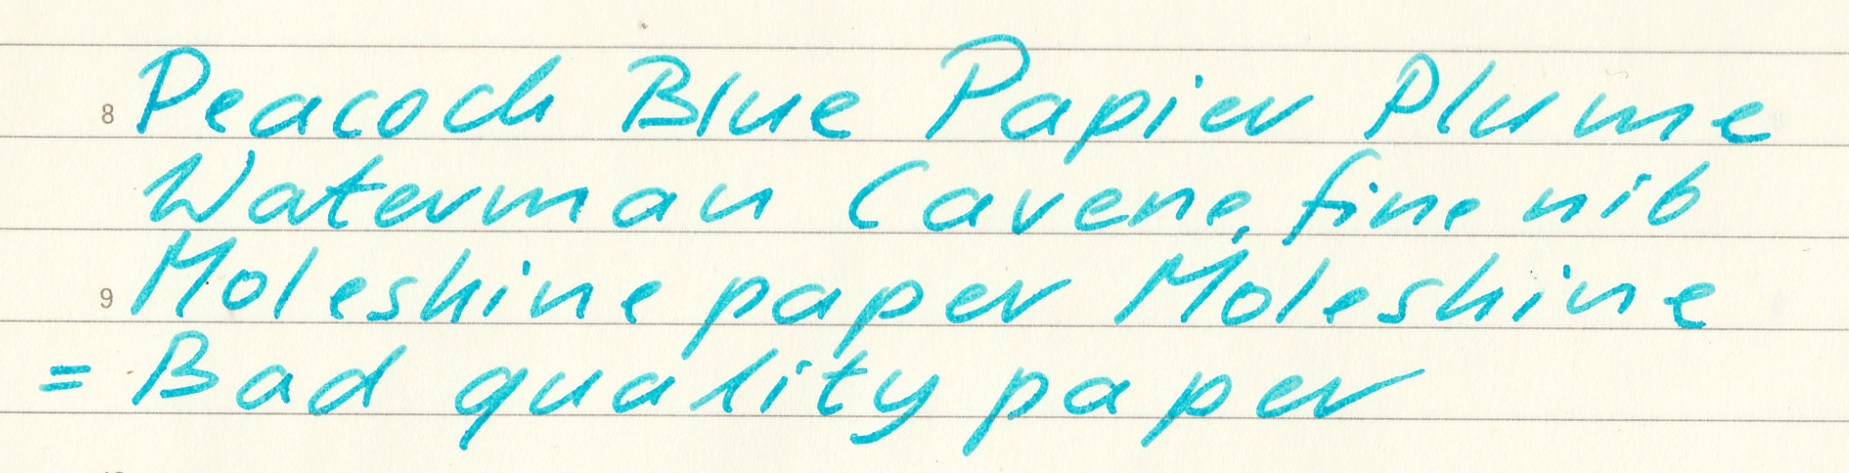 8 Peacock Blue Papier Plume
Waterman Carene, fine nib
9 Moleskine paper Moleskine
= Bad quality paper